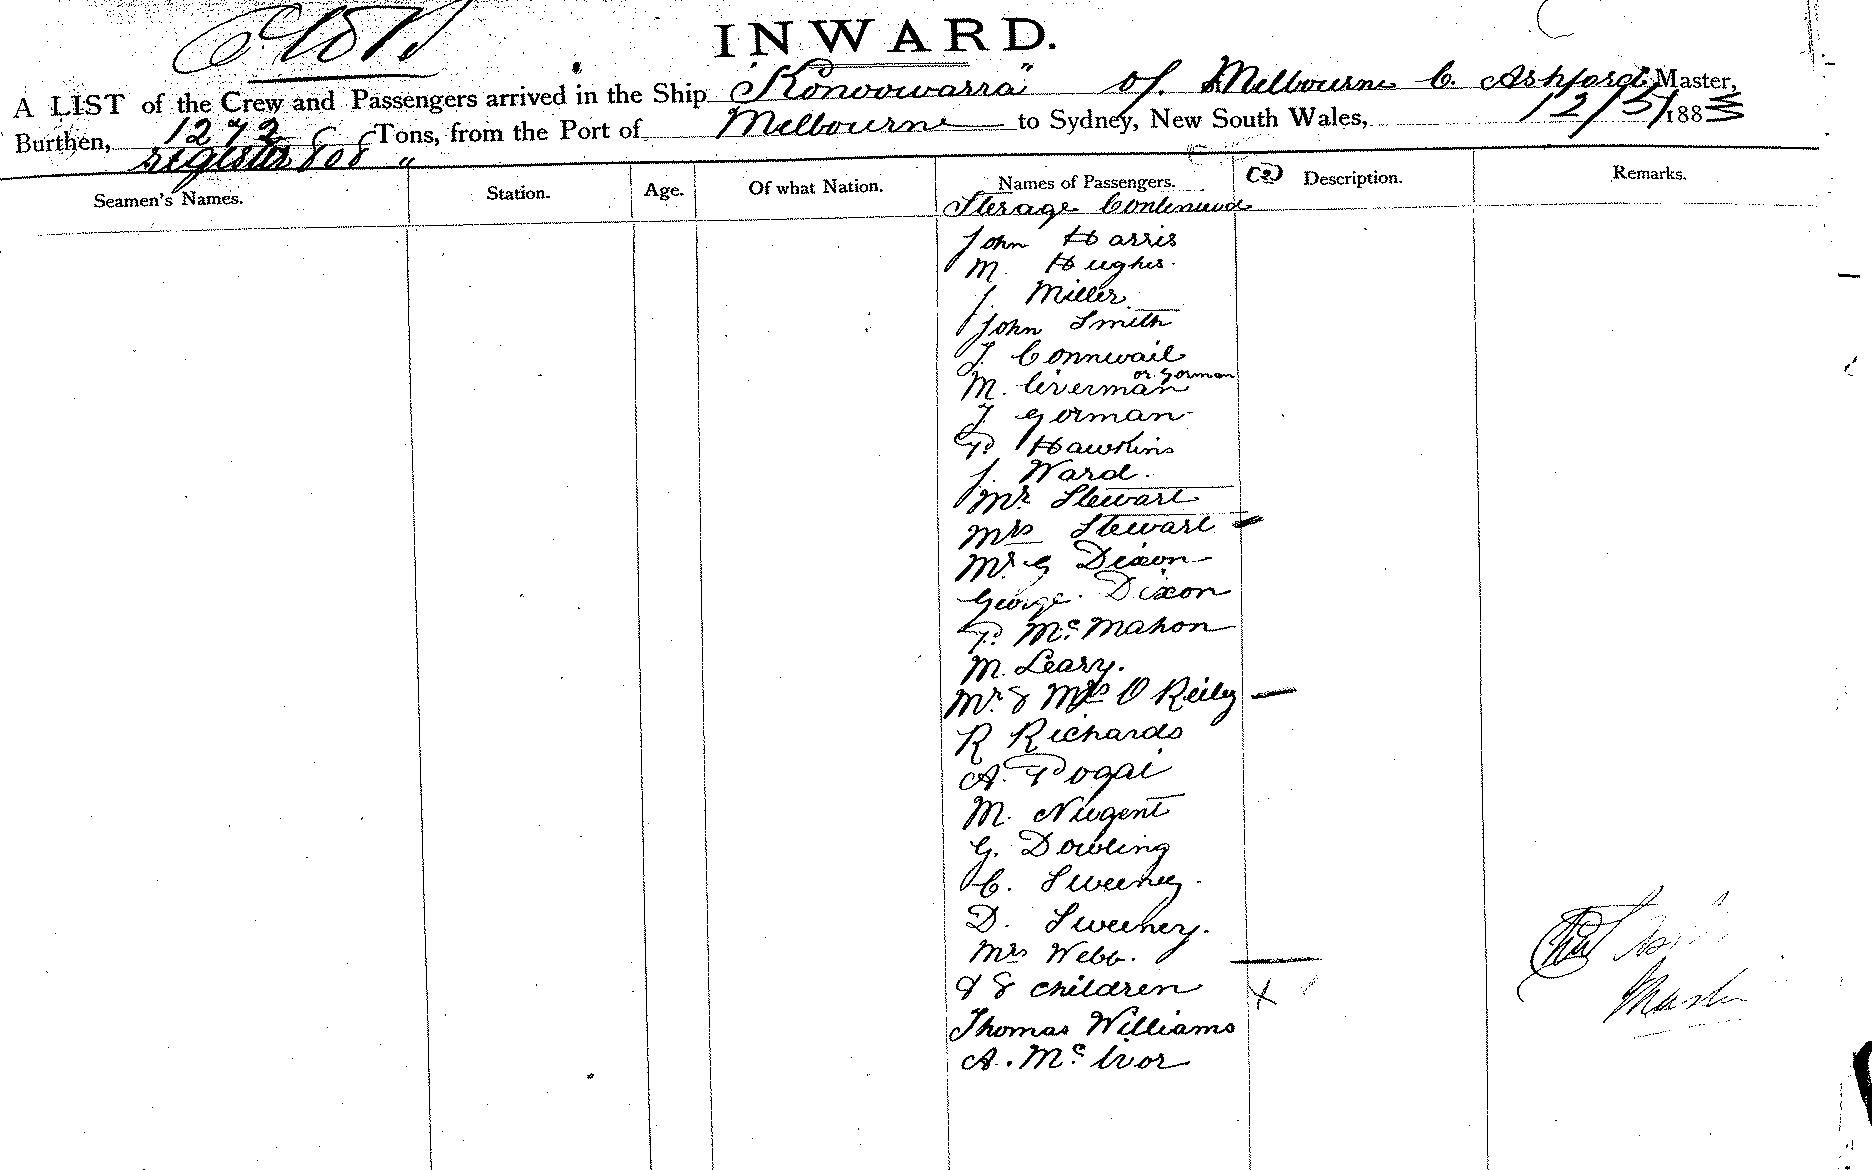 INWARD.
A LIST of the Crew and Passengers arrived in the Ship "Konoowarra" of Melbourne C. Ashford, Master,
Burthen, 1272 Tons, from the Port of Melbourne to Sydney, New South Wales, 12/5/1883
register 808 "
Seamen's Names. Station. Age. Of what Nation. Names of Passengers. (2) Description. Remarks.
Sterage Continued
John Harris
M. Hughes.
J. Miller
John Smith
J. Connwail
or Gorman
M. Civerman
J Gorman
P Hawkins
J. Ward.
Mr Stewart
Mrs Stewart
Mr. G Dixon
George. Dixon
P. Mc Mahon
M. Leary.
Mr. & Mrs O Reily
R Richards
A. Pogai
M. Nugent
G. Dowling
C. Sweeney.
D. Sweeney.
Mrs Webb.
& 8 children X
Thomas Williams
A. Mc Ivor
Master